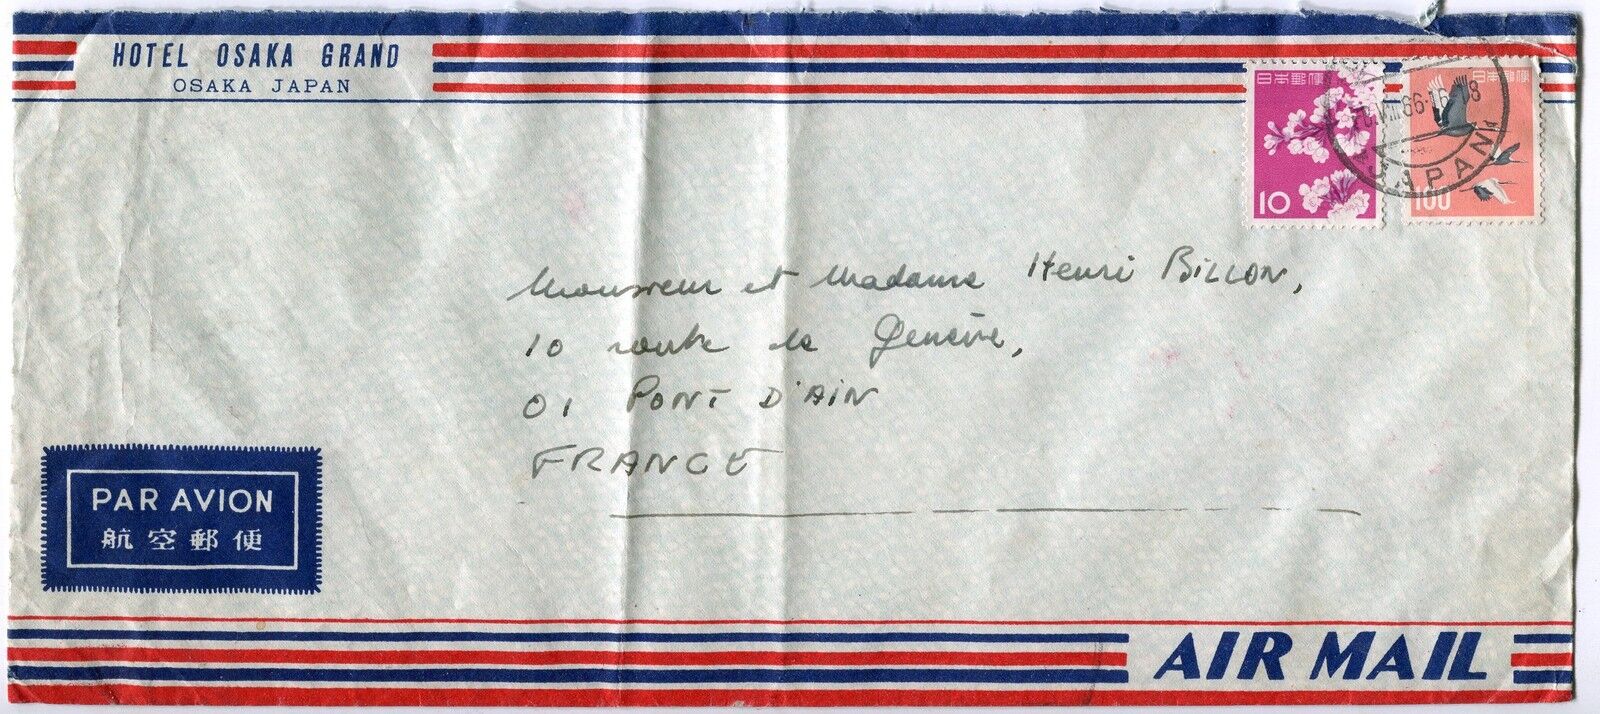 HOTEL OSAKA GRAND
OSAKA JAPAN
日本郵便
10
日本郵便
100
VIII.66.16-18
JAPAN
Monsieur et Madame Henri BILLON,
10 route de Genève,
01 PONT D'AIN
FRANCE
PAR AVION
航空郵便
AIR MAIL